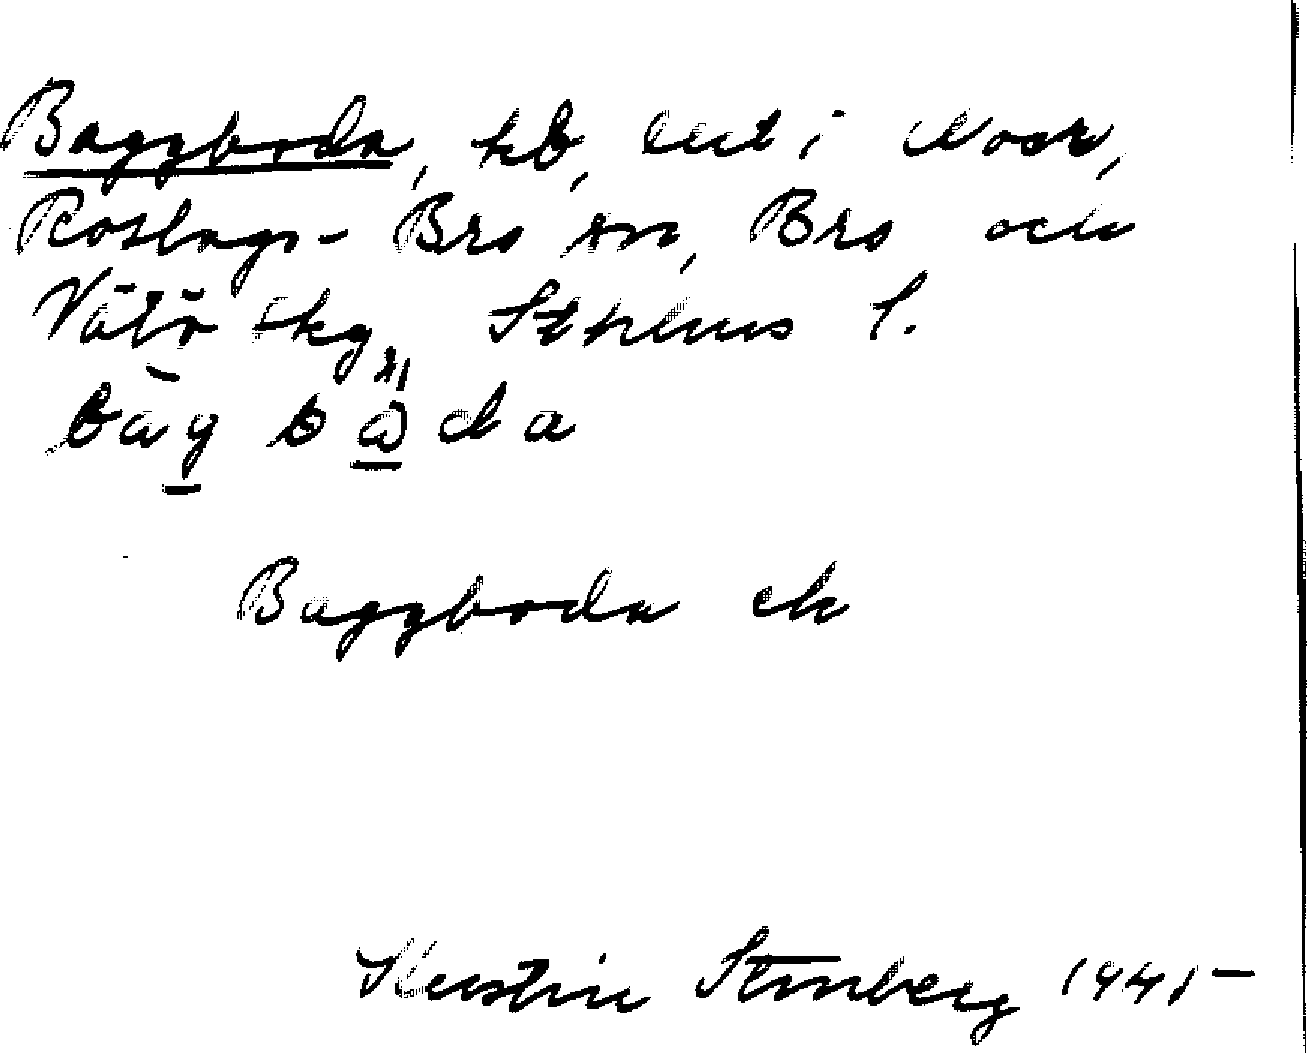 Baggboda, hb, lht i Nor,
Roslags-Bro sn, Bro och
Vätö skg, Sthlms l.
bàg bà̀da
Baggboda ek
Kerstin Stenberg 1945